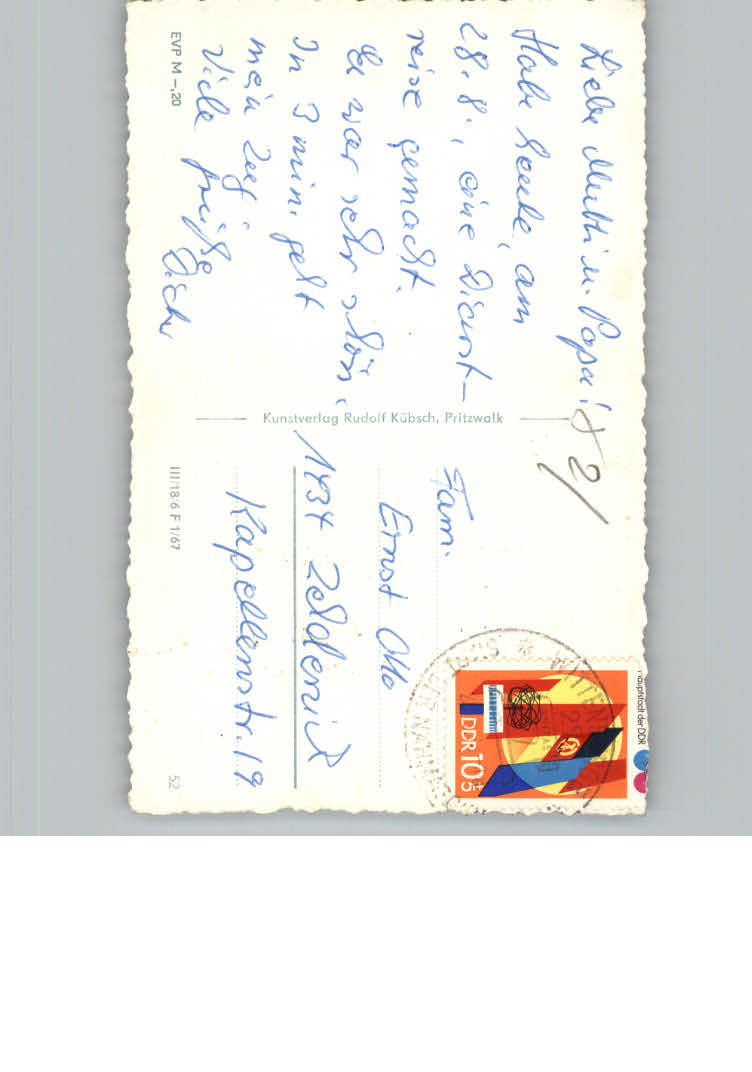 Liebe Mutti u. Papa!
Habe heute, am
28.8., eine Dienst-
reise gemacht.
Es war sehr schön.
In 3 min. geht
mein Zug.
Viele Grüße
EVP M –,20
Kunstverlag Rudolf Kübsch, Pritzwalk
82/
Fam.
Ernst Otto
1434 Zehdenick
Kapellenstr. 19
III/18/6 F 1/67
52
Hauptstadt der DDR
DDR 10+5
WITTEN